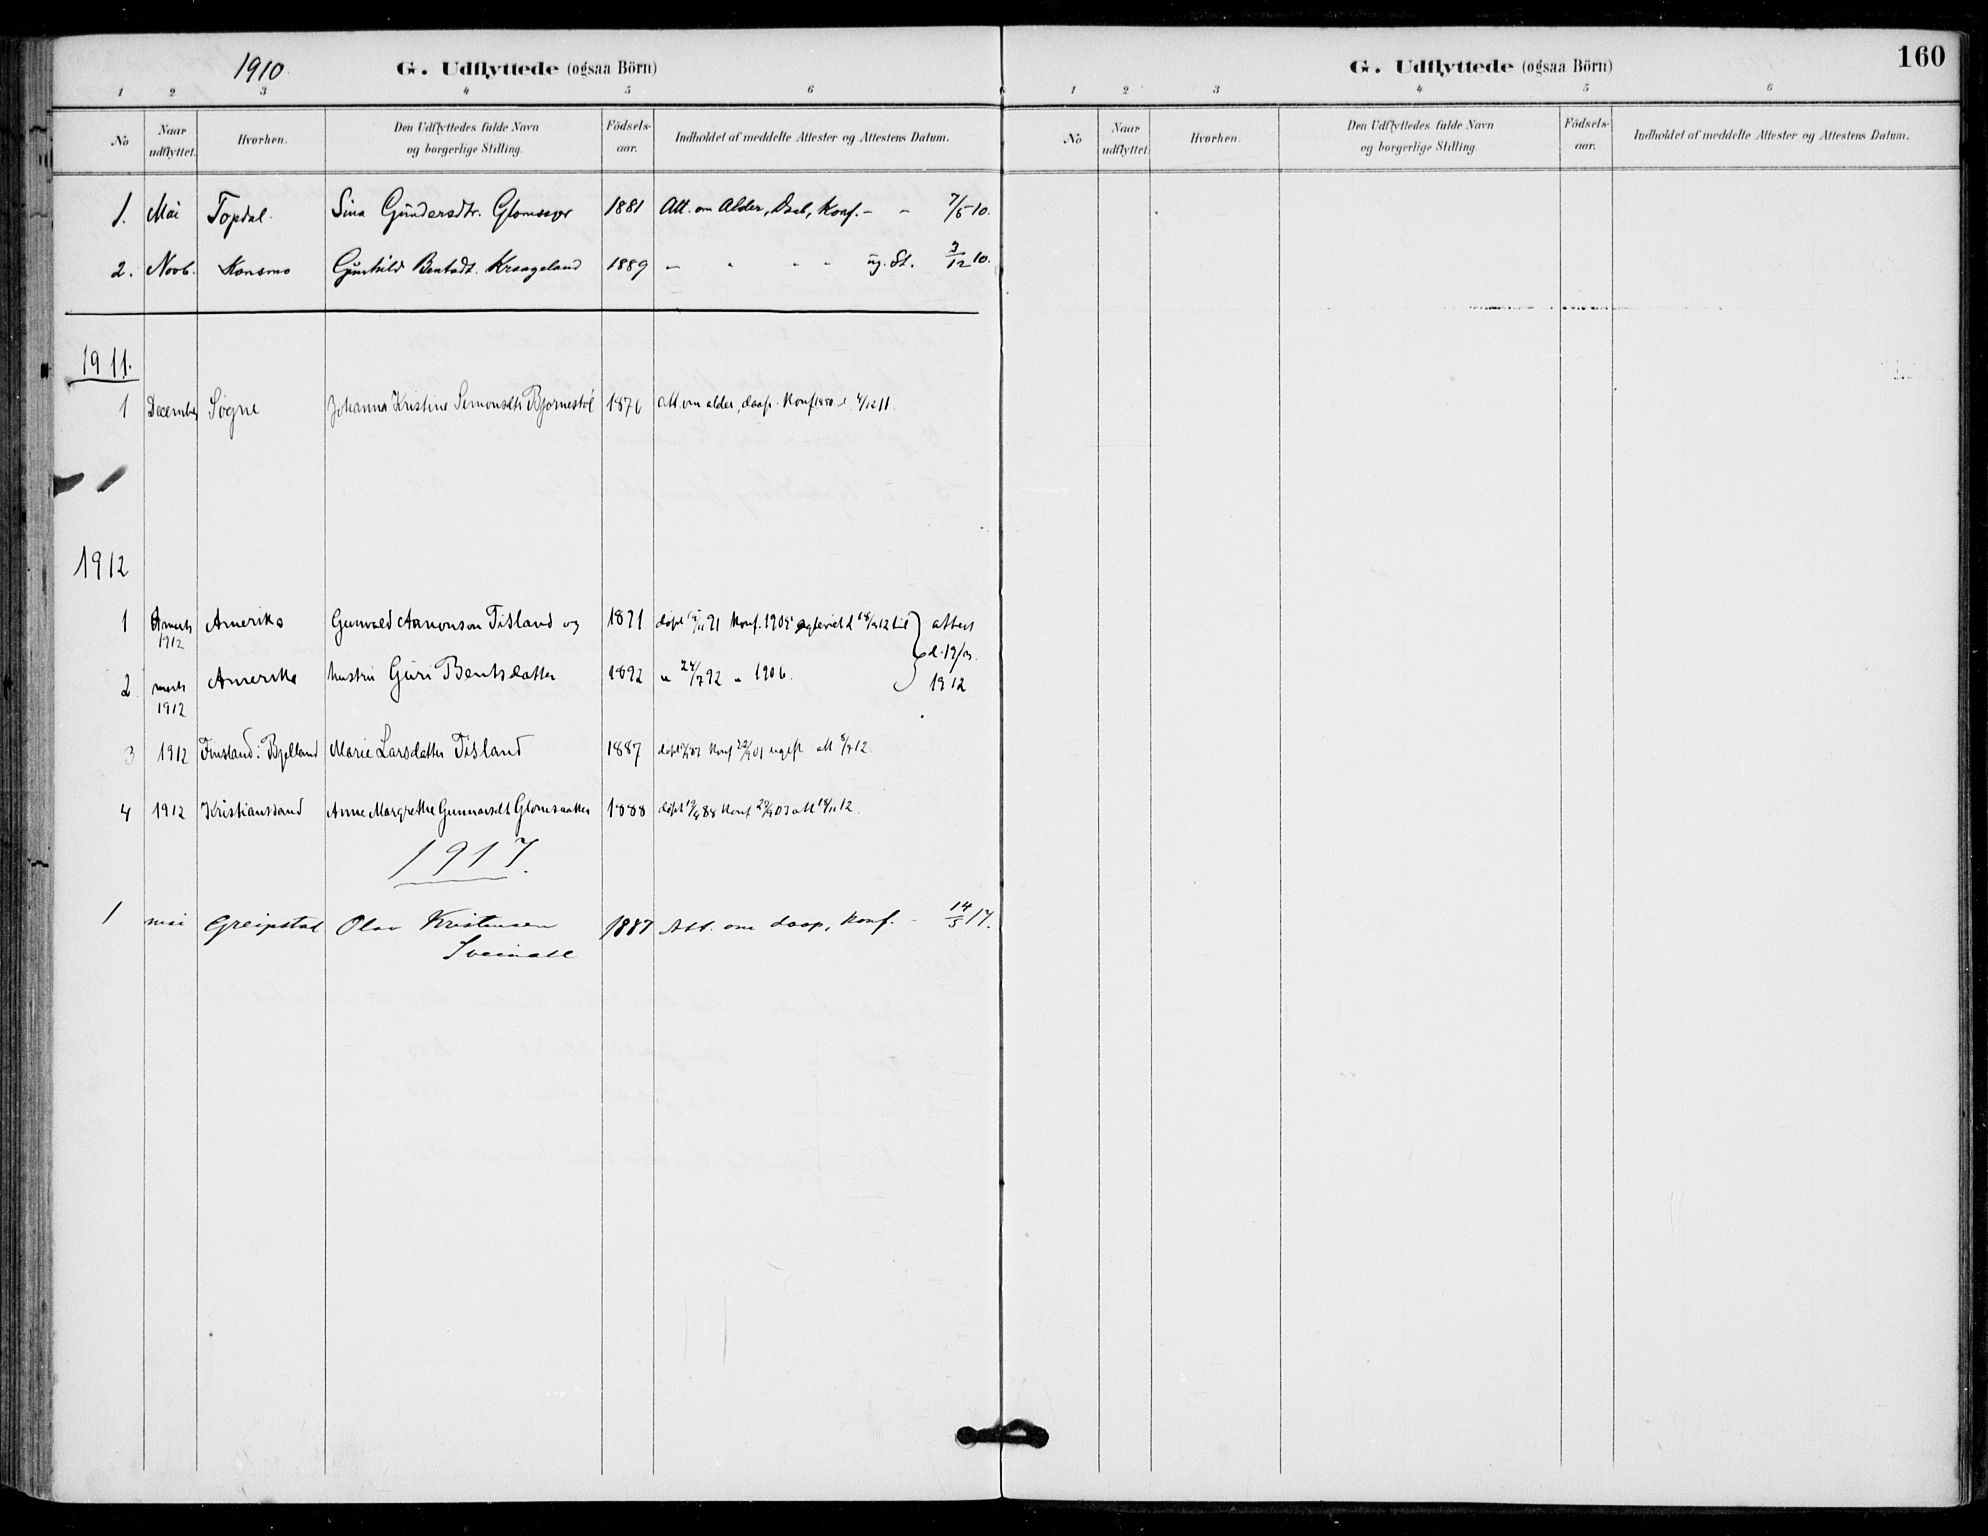 1910. G. Udflyttede (ogsaa Börn)
1 2 3 4 5 6
No Naar udflyttet. Hvorhen. Den Udflyttedes fulde Navn og borgerlige Stilling. Födsels-aar. Indholdet af meddelte Attester og Attestens Datum.
1. Mai Topdal. Sina Gundersdtr. 1881 Att. om Alder, Daab, Konf. - - 7/5 10.
2. Novb. Konsmo Gunhild Bentsdt. Kraageland 1889 - " - - ug. St. 3/12 10.
1911.
1 December Søgne Johanna Kristine Simonsdtr Bjørnestøl 1876 Att. om alder, daap. Konf 11.
1912
1 marts 1912 Amerika Gunvald Aanonsen Tisland og 1891 døpt 91 Konf. 1905 til attest
d. 19/3.
2 marts 1912 Amerika hustru Guri Bentsdatter 1892 " 24/7 92 " 1906. 1912
3 1912 Finsland i Bjelland Marie Larsdatter Tisland 1887 døpt Konf ugift att 12
4 1912 Kristianssand Anne Margrethe 1888 døpt 88 Konf 03 att 12.
1917.
1 mai Greipstad Olav Kristensen 1887 Att. om daap, konf. - 14/5 17.
G. Udflyttede (ogsaa Börn) 160
1 2 3 4 5 6
No Naar udflyttet Hvorhen. Den Udflyttedes fulde Navn og borgerlige Stilling. Födsels-aar. Indholdet af meddelte Attester og Attestens Datum.